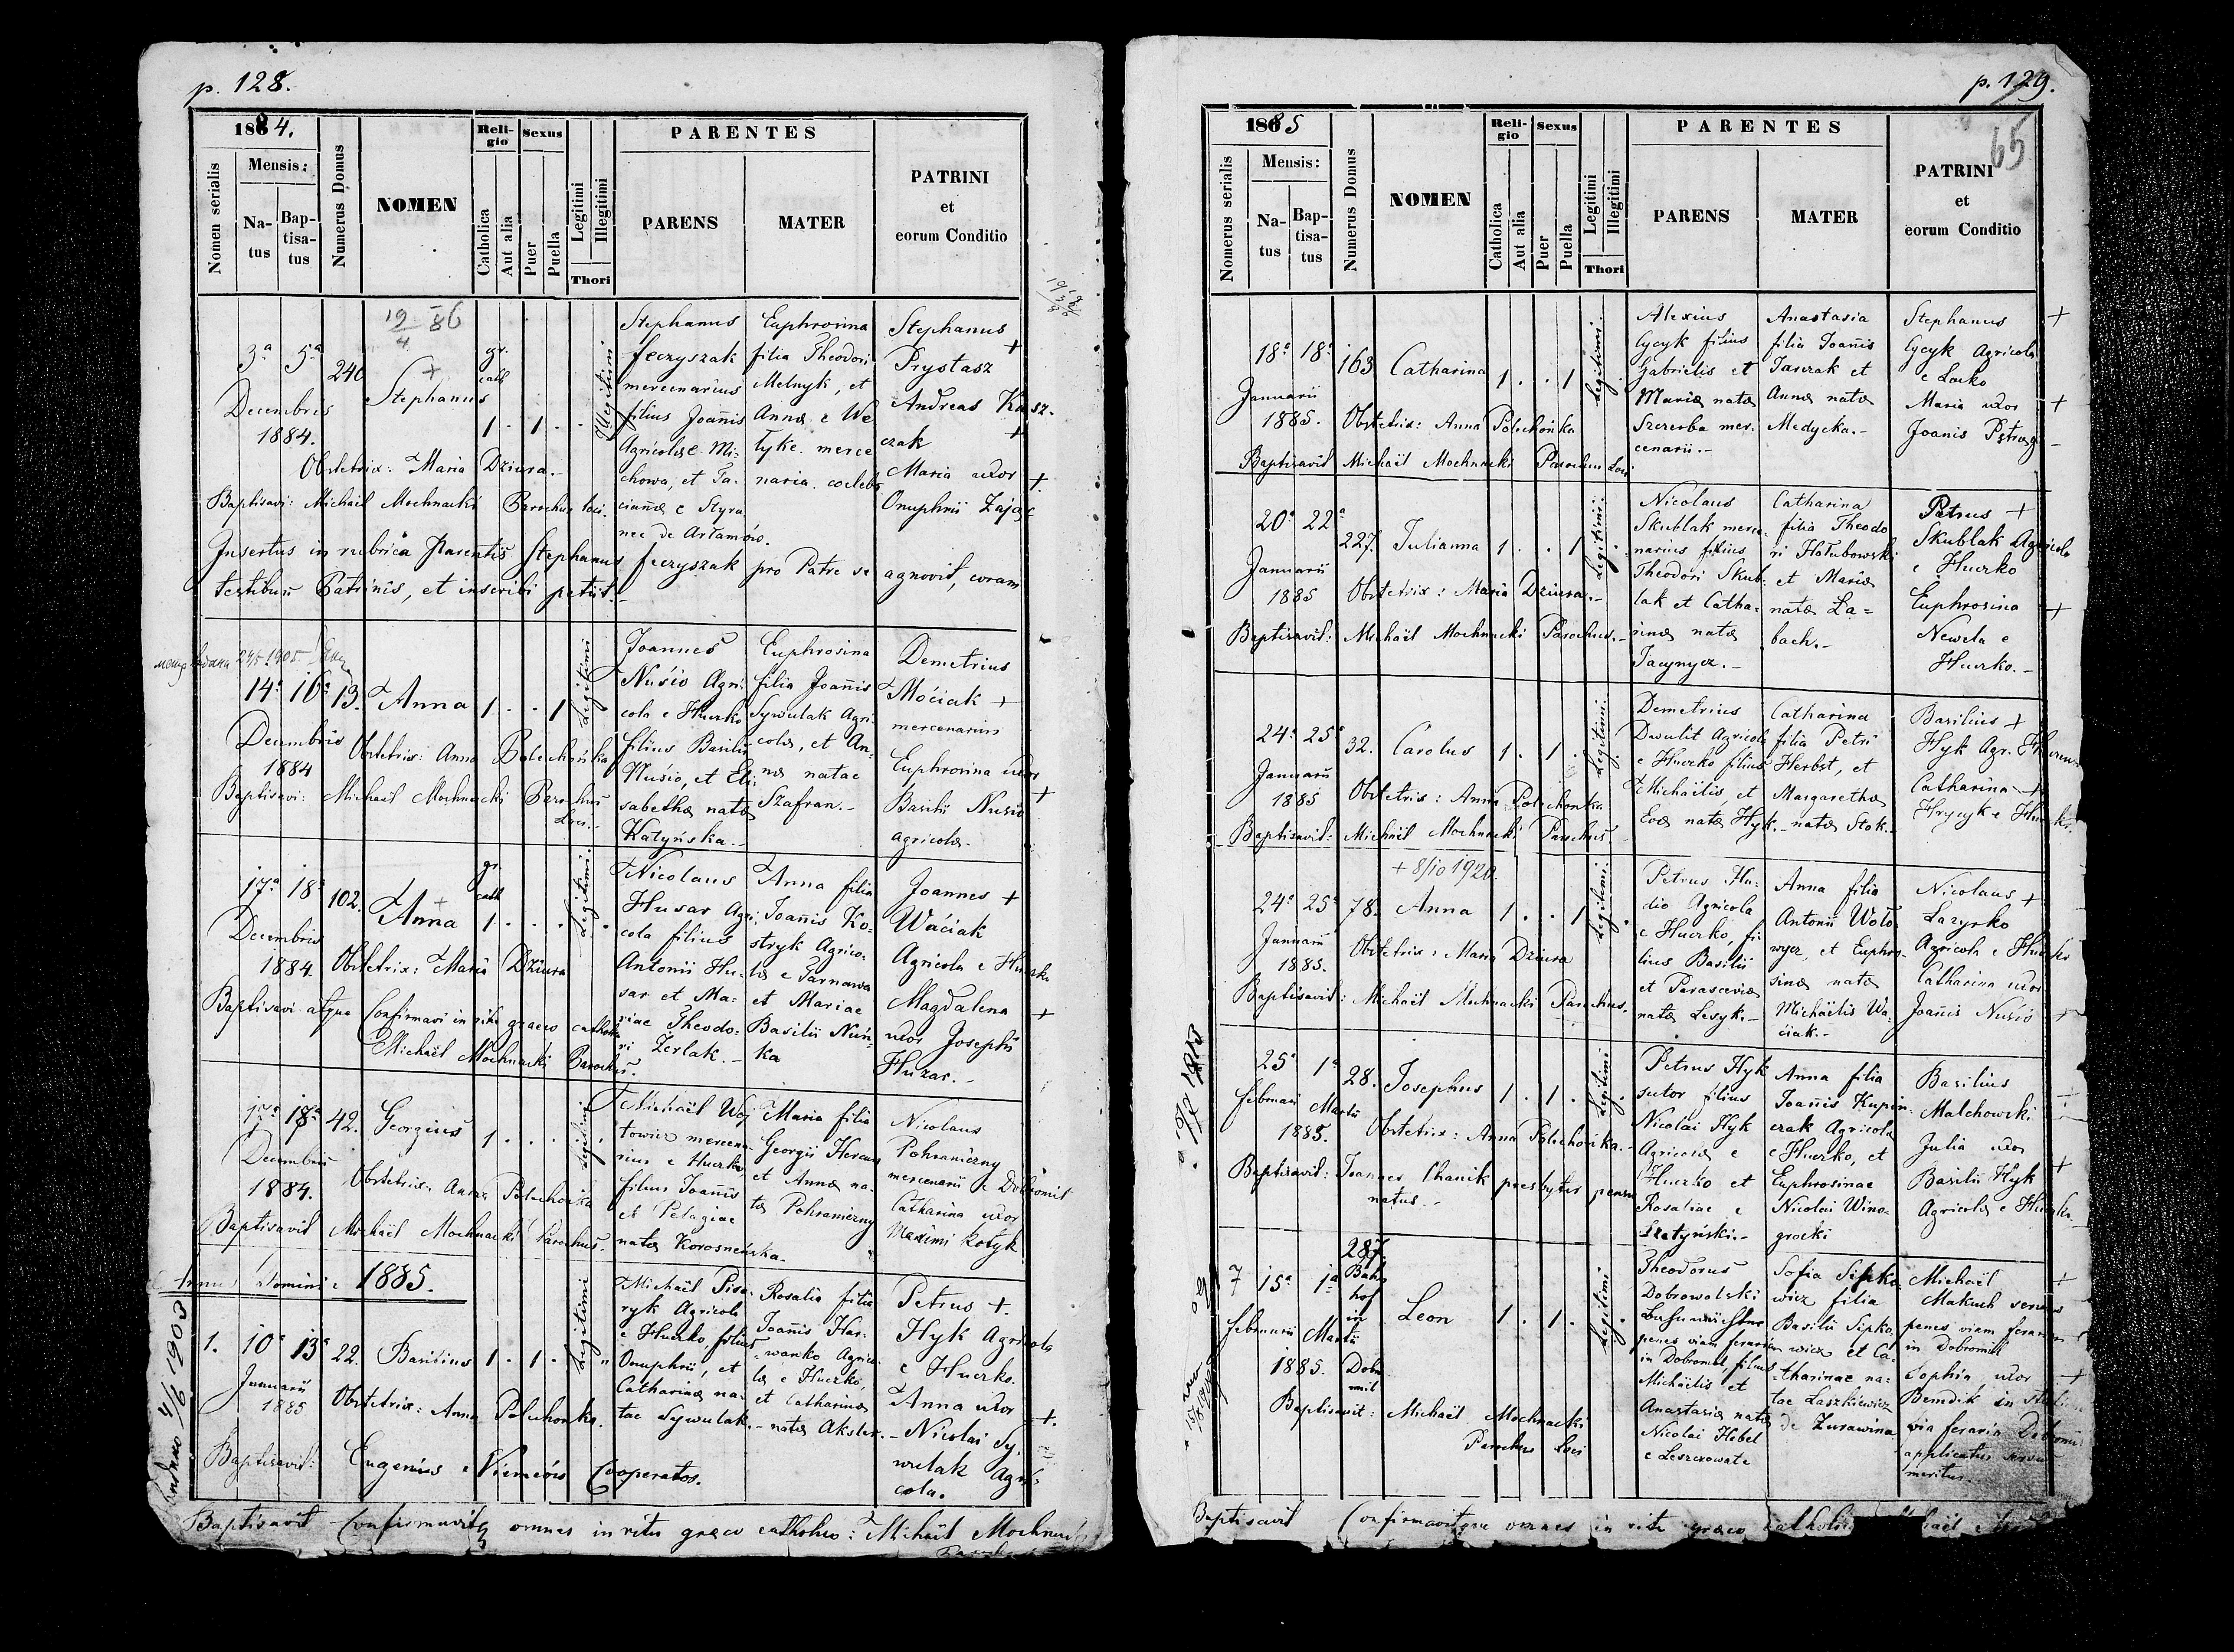 p. 128.
1884.
Nomen serialis
Mensis:
Na-
tus
Bap-
tisa-
tus
Numerus Domus
NOMEN
Reli-
gio
Catholica
Aut alia
Sexus
Puer
Puella
Legitimi
Illegitimi
Thori
PARENTES
PARENS
MATER
PATRINI
et
eorum Conditio
3a 5a
Decembris
1884.
240
Stephanus
gr.
cath
1 . 1 . .
Illegitimi
Stephanus
Feczyszak
mercenarius
filius Joannis
Agricolae Mi-
chowa, et Ta-
cianna e Styra
nec de Artamów.
Euphrosina
filia Theodori
Melnyk, et
Anna e We
lyke merce
naria. coelebs
Stephanus
Prystasz
Andreas Kasz-
czak
Maria uxor
Onuphrii Zając
Obstetrix: Maria Dziura.-
Baptisavi: Michaël Mochnacki Parochus loci.
Insertus in rubrica Parentis Stephanus Feczyszak pro Patre se agnovit, coram
testibus Patrinis, et inscribi petiit.-
14a 16a
Decembris
1884
13.
Anna
1 . . 1
Legitimi
Joannes
Nusio Agri-
cola e Huczko
filius Basilii
Nusio, et Eli-
sabetha nata
Katyńska.-
Euphrosina
filia Joannis
Sywulak Agri-
cola, et An-
na natae
Szafran.-
Demetrius
Mociak +
mercenarius
Euphrosina uxor
Basilii Nusio +
agricola.
Obstetrix: Anna Poluchońka
Baptisavi: Michaël Mochnacki Parochus
Loci.-
17a 18a
Decembris
1884.
102.
Anna
gr.
cath
1 . . .
Legitimi.
Nicolaus
Husar Agri-
cola filius
Antonii Hu-
sar et Ma-
riae Theodo-
ri Zerlak.-
Anna filia
Joannis Ko-
stryk Agrico-
la e Tarnawa
et Mariae
Basilii Nuń-
ka
Joannes +
Waciak
Agricola e Huczko
Magdalena +
uxor Josephi
Huzar.-
Obstetrix: Maria Dziura
Baptisavi atque Confirmavi in ritu graeco catholico
Michaël Mochnacki Parochus.
17a 18a
Decembris
1884.
42.
Georgius
1 . . .
Legitimi
Michaël Woj
towicz mercena-
rius e Huczko
filius Joannis
et Pelagiae
nata Korosneńska.
Maria filia
Georgii Hercun
et Anna na-
ta Pohramierny
Nicolaus
Pohramierny
mercenarii e Dobromil
Catharina uxor
Maximi Kotyk
Obstetrix: Anna Poluchońka
Baptisavit Michaël Mochnacki Parochus.
Annus Domini 1885.
1. 10a 13a
Januarii
1885
22.
Basilius
1 . 1 .
Legitimi
Michaël Pisa-
ryk Agricola
e Huczko, filius
Onuphrii, et
Catharina na-
tae Sywulak.-
Rosalia filia
Joannis Har-
wanko Agrico-
la e Huczko,
et Catharina
nata Aksler.-
Petrus +
Hyk Agricola
e Huczko.
Anna uxor +
Nicolai Sy-
wulak Agri-
cola.
Obstetrix: Anna Poluchonka.
Baptisavit: Eugenius Niemców Cooperator.
Baptisavit Confirmavitq omnes in ritu graeco catholico: Michaël Mochnacki
p. 129.
65
1885
Nomerus serialis
Mensis:
Na-
tus
Bap-
tisa-
tus
Numerus Domus
NOMEN
Reli-
gio
Catholica
Aut alia
Sexus
Puer
Puella
Legitimi
Illegitimi
Thori
PARENTES
PARENS
MATER
PATRINI
et
eorum Conditio
18a 18a
Januarii
1885.
163
Catharina
1 . . 1
Legitimi.
Alexius
Cycyk filius
Gabrielis et
Maria nata
Szczerba mer-
cenarii.-
Anastasia
filia Joannis
Jaszrak et
Anna nata
Medycka.-
Stephanus +
Cycyk Agricola
e Lacko
Maria uxor +
Joanis Pstrąg -
Obstetrix: Anna Poluchońka
Baptisavit Michaël Mochnacki Parochus Loci
20a 22a
Januarii
1885
227.
Julianna
1 . . 1
Legitimi.
Nicolaus
Skublak merce-
narius filius
Theodori Skub-
lak et Catha-
rina nata
Jacynycz.-
Catharina
filia Theodo
ri Hołubowski
et Maria
nata La-
bach.-
Petrus +
Skublak Agricola
e Huczko
Euphrosina +
Newela e
Huczko.-
Obstetrix: Maria Dziura.-
Baptisavit: Michaël Mochnacki Parochus.-
24a 25a
Januarii
1885
32.
Carolus
1 . 1 .
Legitimi.
Demetrius
Dwulit Agricola
e Huczko filius
Michaëlis, et
Eva nata Hyk.-
Catharina
filia Petri
Herbst, et
Margaretha
nata Stok.-
Basilius +
Hyk Agr.
Catharina +
Hrycyk e Huczko.
Obstetrix: Anna Poluchonka
Baptisavit: Michaël Mochnacki Parochus.
+ 8/10 1920.
24a 25a
Januarii
1885.
78.
Anna
1 . . 1
Legitimi.
Petrus Hu-
dio Agricola
e Huczko, fi-
lius Basilii
et Parascevia
nata Lesyk.-
Anna filia
Antonii Woło-
wycz, et Euphro-
sina nata
Michaëlis Wa-
ciak.-
Nicolaus +
Lazyrko
Agricola e Huczko
Catharina uxor
Joannis Nusio +
Obstetrix: Maria Dziura
Baptisavit: Michaël Mochnacki Parochus.
25a 1a
Februarii Martii
1885.
28.
Josephus
1 . 1 .
Legitimi
Petrus Hyk
sutor filius
Nicolai Hyk
Agricola e
Huczko et
Rosaliae e
Anna filia
Joannis Kupin-
czak Agricola
e Huczko, et
Euphrosinae
Nicolai Wino-
grocki
Basilius
Malchowski
Julia uxor
Basilii Hyk
Agricola e Huczko
Obstetrix: Anna Poluchońka.-
Baptisavit: Joannes Chanik presbyter pensio
natus.-
7 15a 1a
Februarii Martii
1885.
287.
Bahn
hof
in
Dobro
mil
Leon
1 . 1 .
Legitimi
Theodorus
Dobrowolski
penes viam ferariam
in Dobromil, filius
Michaëlis et
Anastasia nata
Nicolai Hebel
e Leszczowate
Sofia Sipko-
wicz filia
Basilii Sipko-
wicz et Ca-
tharinae na-
tae Laszkiewicz
de Zurawina
Michaël +
Makuch servus
penes viam ferariam
in Dobromil
Sophia, uxor +
Bendik in
via feraria
applicatus servus
Baptisavit: Michaël Mochnacki
Parochus Loci
Baptisavit Confirmavitque omnes in ritu graeco catholico